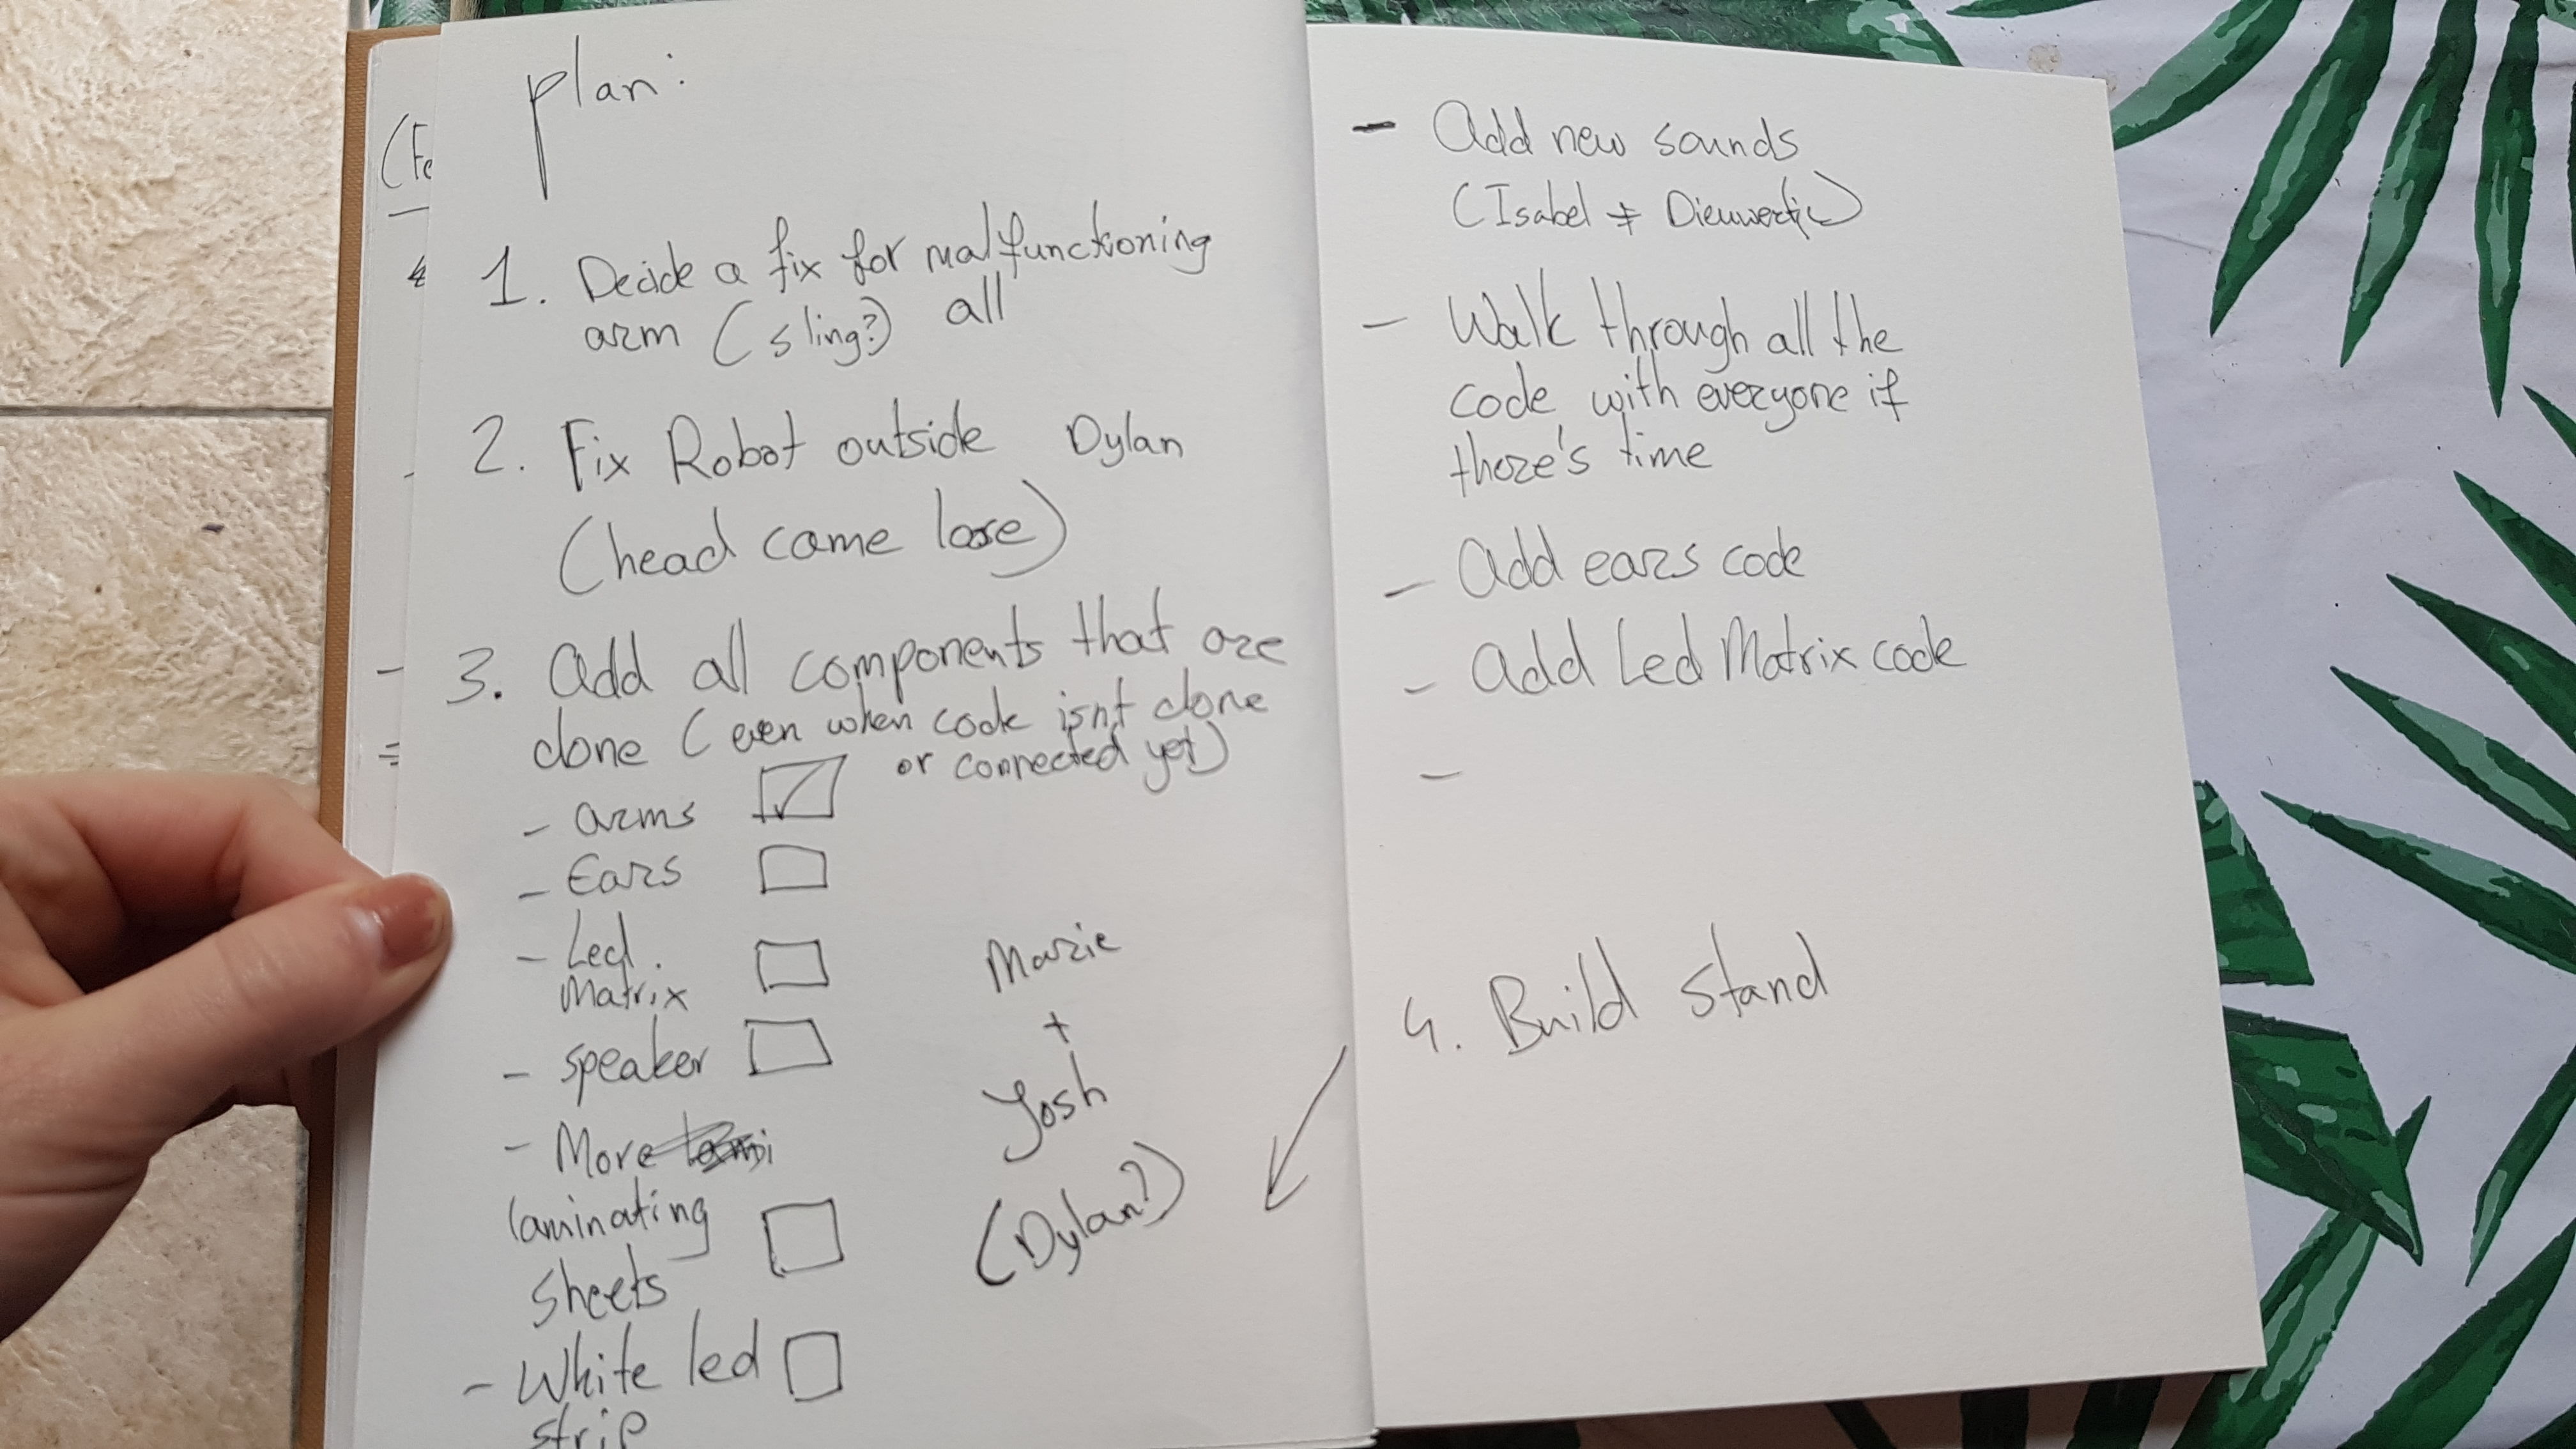 Plan:
1. Decide a fix for malfunctioning
arm (sling?) all
2. Fix Robot outside Dylan
(head came loose)
3. Add all components that are
done (even when code isn't done
or connected yet)
- arms
- Ears
- Led
Matrix
- speaker
- More
laminating
sheets
- White led
strip
Marie
+
Josh
(Dylan?)
- Add new sounds
(Isabel +
- Walk through all the
code with everyone if
there's time
- Add ears code
- Add Led Matrix code
-
4. Build stand